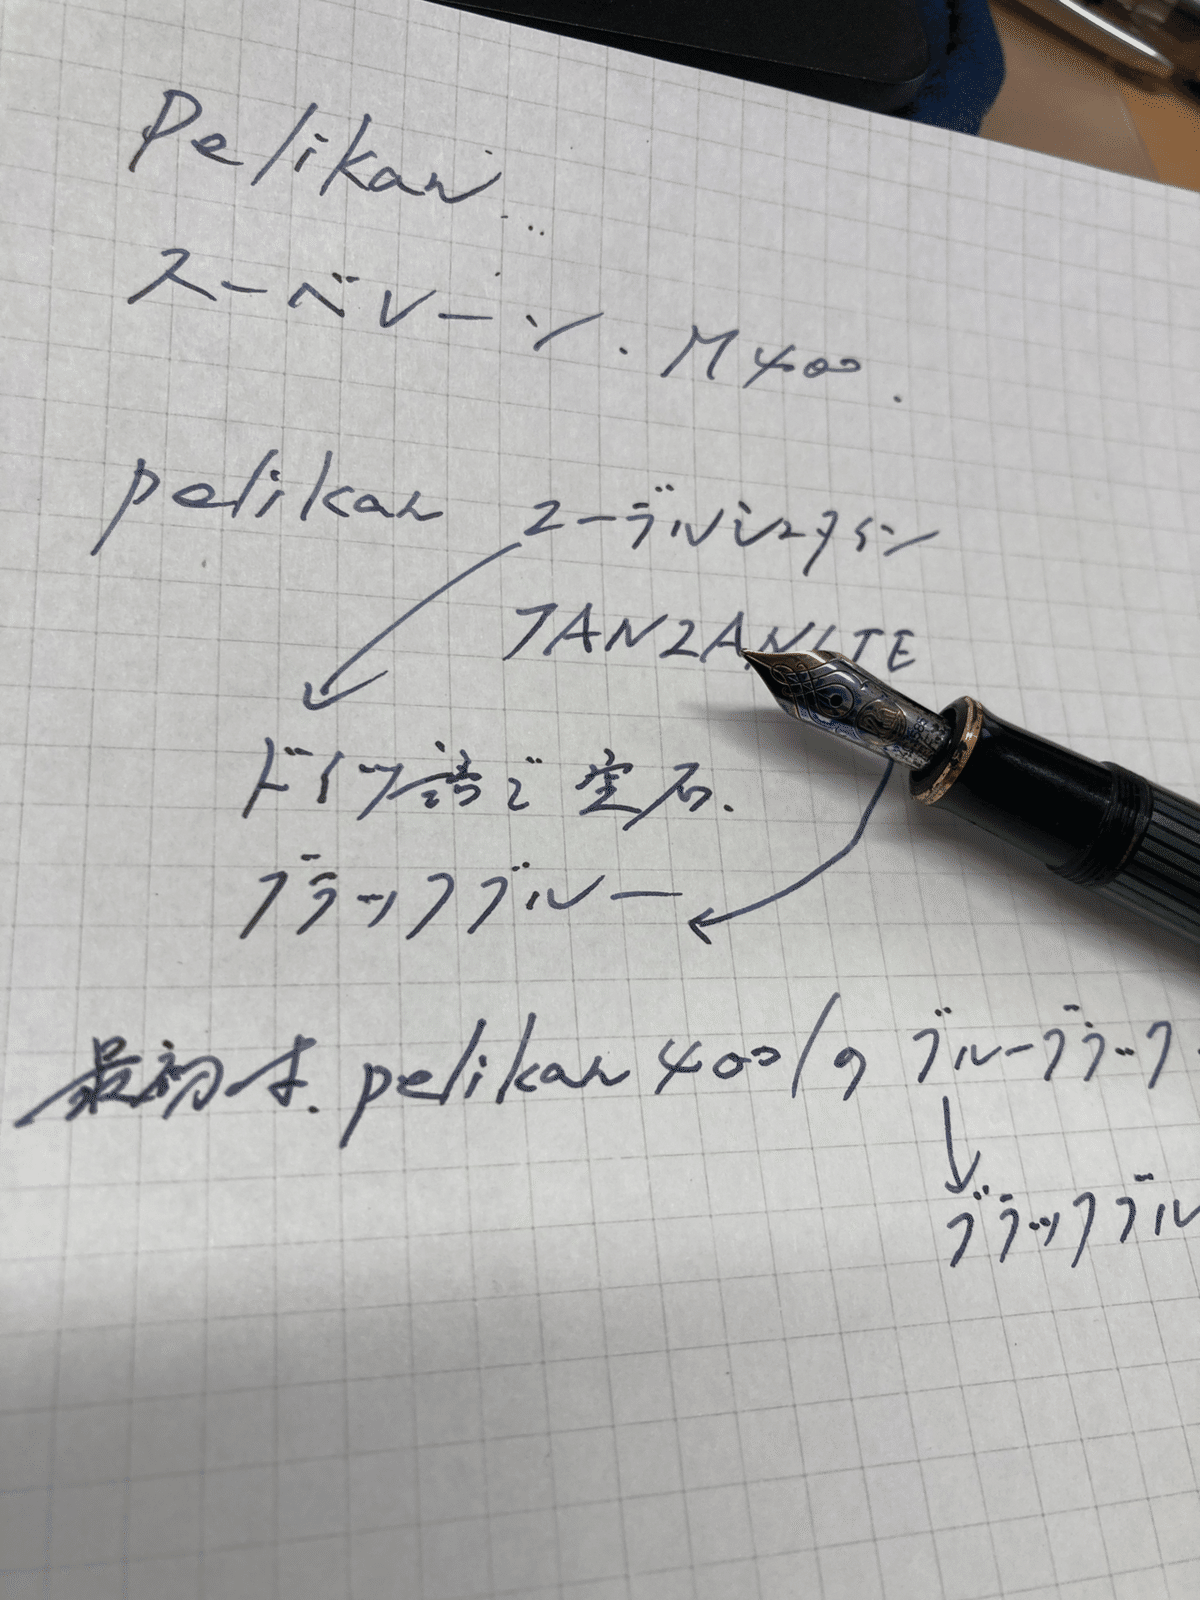 Pelikan...
スーベレーン. M400.
pelikan エーデルシュタイン
TANZANITE
ドイツ語で宝石.
ブラックブルー
最初は. pelikan 4001の ブルーブラック
ブラックブル